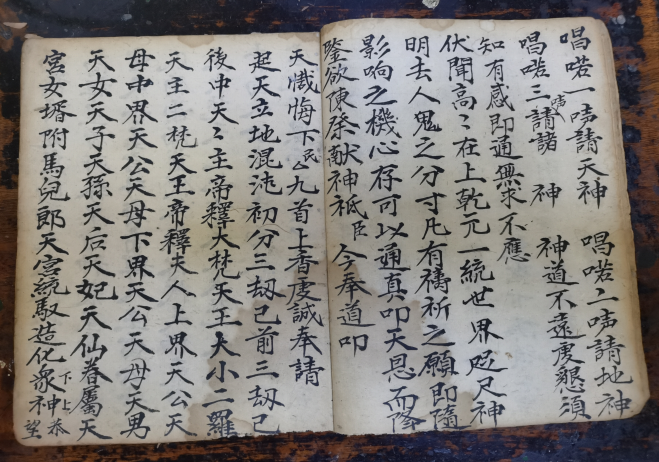 唱喏一声請天神　唱喏二声請地神
唱喏三声請諸　神　神道不遠虔懇須
知有感即通無求不應
伏聞高〻在上乾元一統世界咫尺神
明去人鬼之分寸凡有禱祈之願即隨
影响之機心存可以通真叩天恩而降
鑒欲陳祭献神祇臣　今奉道叩
天懺悔下民厶九首上香虔誠奉請
起天立地混沌初分三劫已前三劫已
後中天〻主帝釋大梵天王大小二羅
天主二梵天王帝釋夫人上界天公天
母中界天公天母下界天公天母天男
天女天子天孫天后天妃天仙眷屬天
宫女壻附馬兒郎天宫統馭造化衆神下上恭望